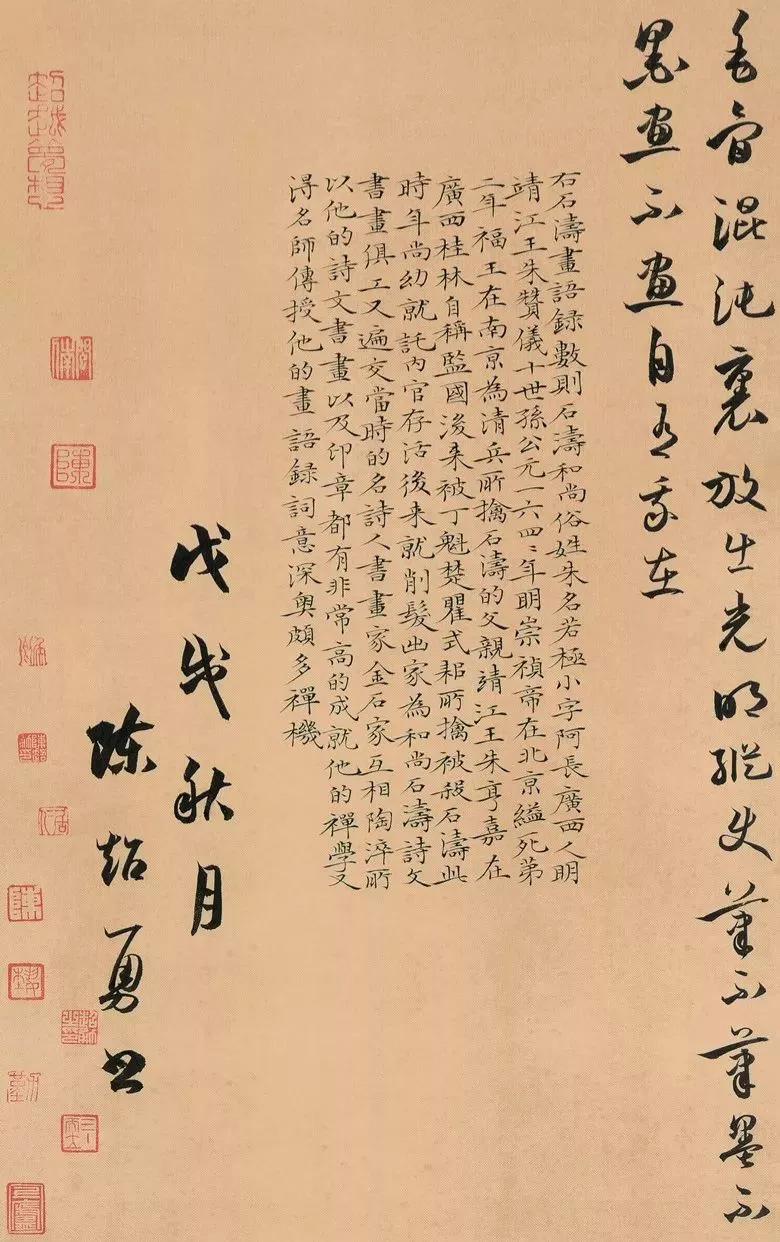 於混沌裏放出光明縱使筆不筆墨不
墨畫不畫自有我在
右石濤畫語録數則石濤和尚俗姓朱名若極小字阿長廣西人明
靖江王朱贊儀十世孫公元一六四二年明崇禎帝在北京縊死弟
二年福王在南京為清兵所擒石濤的父親靖江王朱亨嘉在
廣西桂林自稱監國後来被丁魁楚瞿式耜所擒被殺石濤此
時年尚幼就託内官存活後来就削髮出家為和尚石濤詩文
書畫俱工又遍交當時的名詩人書畫家金石家互相陶淬所
以他的詩文書畫以及印章都有非常高的成就他的禪學又
淂名師傳授他的畫語録詞意深奥頗多禪機
戊戌秋月
陳韶勇書